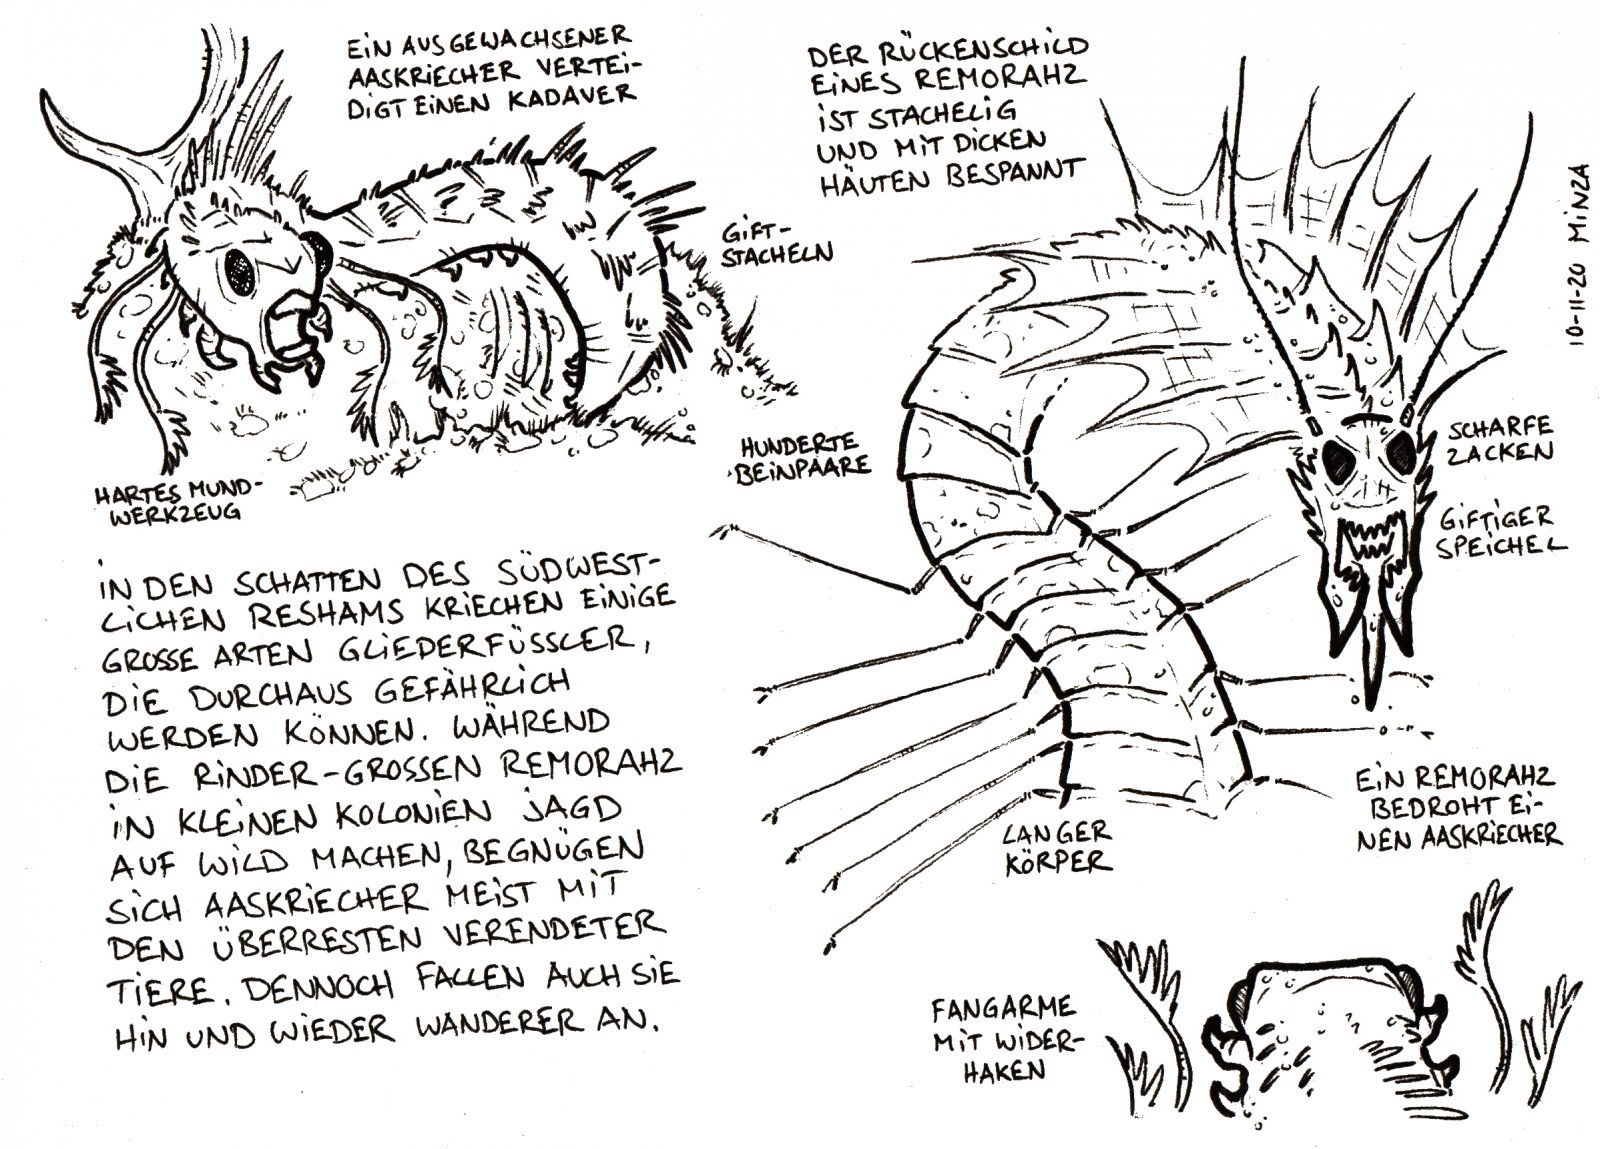 EIN AUSGEWACHSENER
AASKRIECHER VERTEI-
DIGT EINEN KADAVER
DER RÜCKENSCHILD
EINES REMORAHZ
IST STACHELIG
UND MIT DICKEN
HÄUTEN BESPANNT
10-11-20 MINZA
GIFT-
STACHELN
HUNDERTE
BEINPAARE
SCHARFE
ZACKEN
GIFTIGER
SPEICHEL
HARTES MUND-
WERKZEUG
IN DEN SCHATTEN DES SÜDWEST-
LICHEN RESHAMS KRIECHEN EINIGE
GROSSE ARTEN GLIEDERFÜSSLER,
DIE DURCHAUS GEFÄHRLICH
WERDEN KÖNNEN. WÄHREND
DIE RINDER-GROSSEN REMORAHZ
IN KLEINEN KOLONIEN JAGD
AUF WILD MACHEN, BEGNÜGEN
SICH AASKRIECHER MEIST MIT
DEN ÜBERRESTEN VERENDETER
TIERE. DENNOCH FALLEN AUCH SIE
HIN UND WIEDER WANDERER AN.
LANGER
KÖRPER
EIN REMORAHZ
BEDROHT EI-
NEN AASKRIECHER
FANGARME
MIT WIDER-
HAKEN